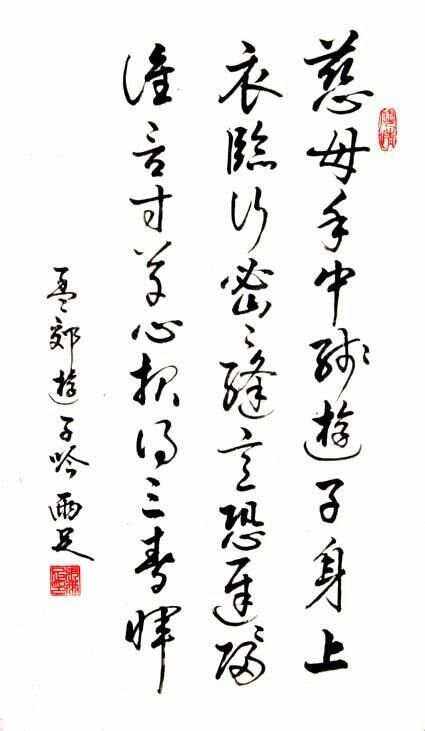 慈母手中綫遊子身上
衣臨行密〻縫意恐遲〻歸
誰言寸草心報得三春暉
孟郊遊子吟